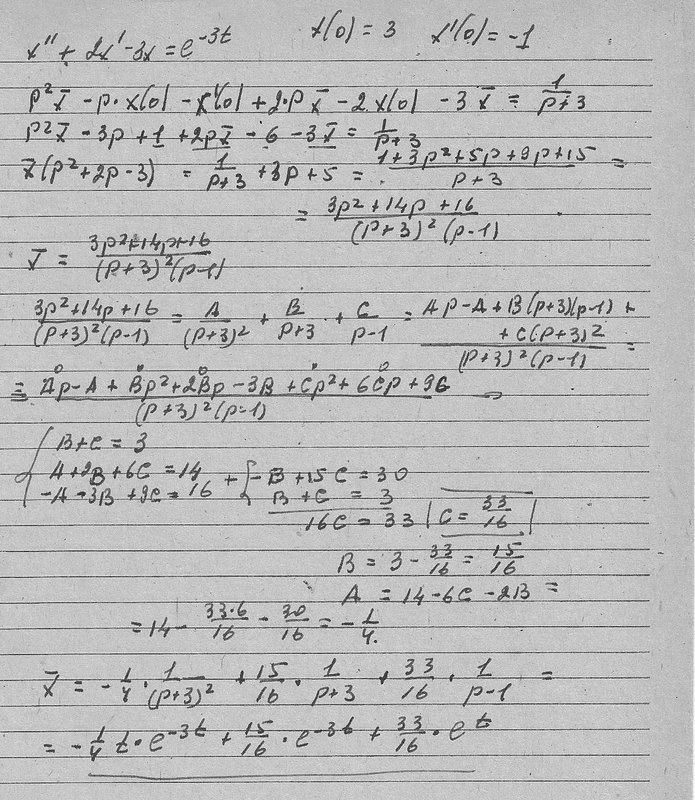 x'' + 2x' - 3x = e^{-3t}   x(0) = 3   x'(0) = -1
p²x̄ - p·x(0) - x'(0) + 2·p x̄ - 2x(0) - 3x̄ = 1/(p+3)
p²x̄ - 3p + 1 + 2px̄ - 6 - 3x̄ = 1/(p+3)
x̄(p² + 2p - 3) = 1/(p+3) + 3p + 5 = (1 + 3p² + 5p + 9p + 15)/(p+3) =
= (3p² + 14p + 16)/((p+3)²(p-1))
x̄ = (3p² + 14p + 16)/((p+3)²(p-1))
(3p² + 14p + 16)/((p+3)²(p-1)) = A/(p+3)² + B/(p+3) + C/(p-1) = (Ap - A + B(p+3)(p-1) + + C(p+3)²)/((p+3)²(p-1)) =
= (Ap - A + Bp² + 2Bp - 3B + Cp² + 6Cp + 9C)/((p+3)²(p-1)) =
{ B + C = 3
A + 2B + 6C = 14 + { -B + 15C = 30
-A - 3B + 9C = 16   B + C = 3
16C = 33 | C = 33/16 |
B = 3 - 33/16 = 15/16
A = 14 - 6C - 2B =
= 14 - 33·6/16 - 30/16 = -1/4.
x̄ = -1/4 · 1/(p+3)² + 15/16 · 1/(p+3) + 33/16 · 1/(p-1) =
= -1/4 t · e^{-3t} + 15/16 · e^{-3t} + 33/16 · e^t